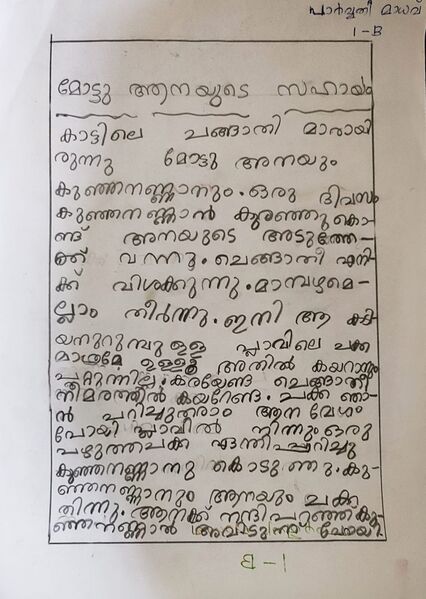 പാർവ്വതി മാധവ്
I-B
മോട്ടു ആനയുടെ സഹായം
കാട്ടിലെ ചങ്ങാതി മാരായി
രുന്നു മോട്ടു ആനയും
കുഞ്ഞനണ്ണാനും. ഒരു ദിവസം
കുഞ്ഞനണ്ണാൻ കരഞ്ഞുകൊ-
ണ്ട് ആനയുടെ അടുത്തേ-
ക്ക് വന്നു. ചെങ്ങാതീ എനി-
ക്ക് വിശക്കുന്നു. മാമ്പഴമെ-
ല്ലാം തീർന്നു. ഇനി ആ
യനുറുമ്പു ഉള്ള പ്ലാവിലെ ചക്ക
മാത്രമേ ഉള്ളൂ അതിൽ കയറാനും
പറ്റുന്നില്ല. കരയേണ്ട ചെങ്ങാതീ
നീമരത്തിൽ കയറേണ്ട. ചക്ക ഞാ-
ൻ പറിച്ചുതരാം ആന വേഗം
പോയി പ്ലാവിൽ നിന്നും ഒരു
പഴുത്തചക്ക ഏന്തിപ്പറിച്ചു
കുഞ്ഞനണ്ണാനു കൊടുത്തു. കു-
ഞ്ഞനണ്ണാനും ആനയും ചക്ക
തിന്നു. ആനക്ക് നന്ദിപറഞ്ഞ്കു
ഞ്ഞനണ്ണാൻ അവിടുന്ന് പോയി.